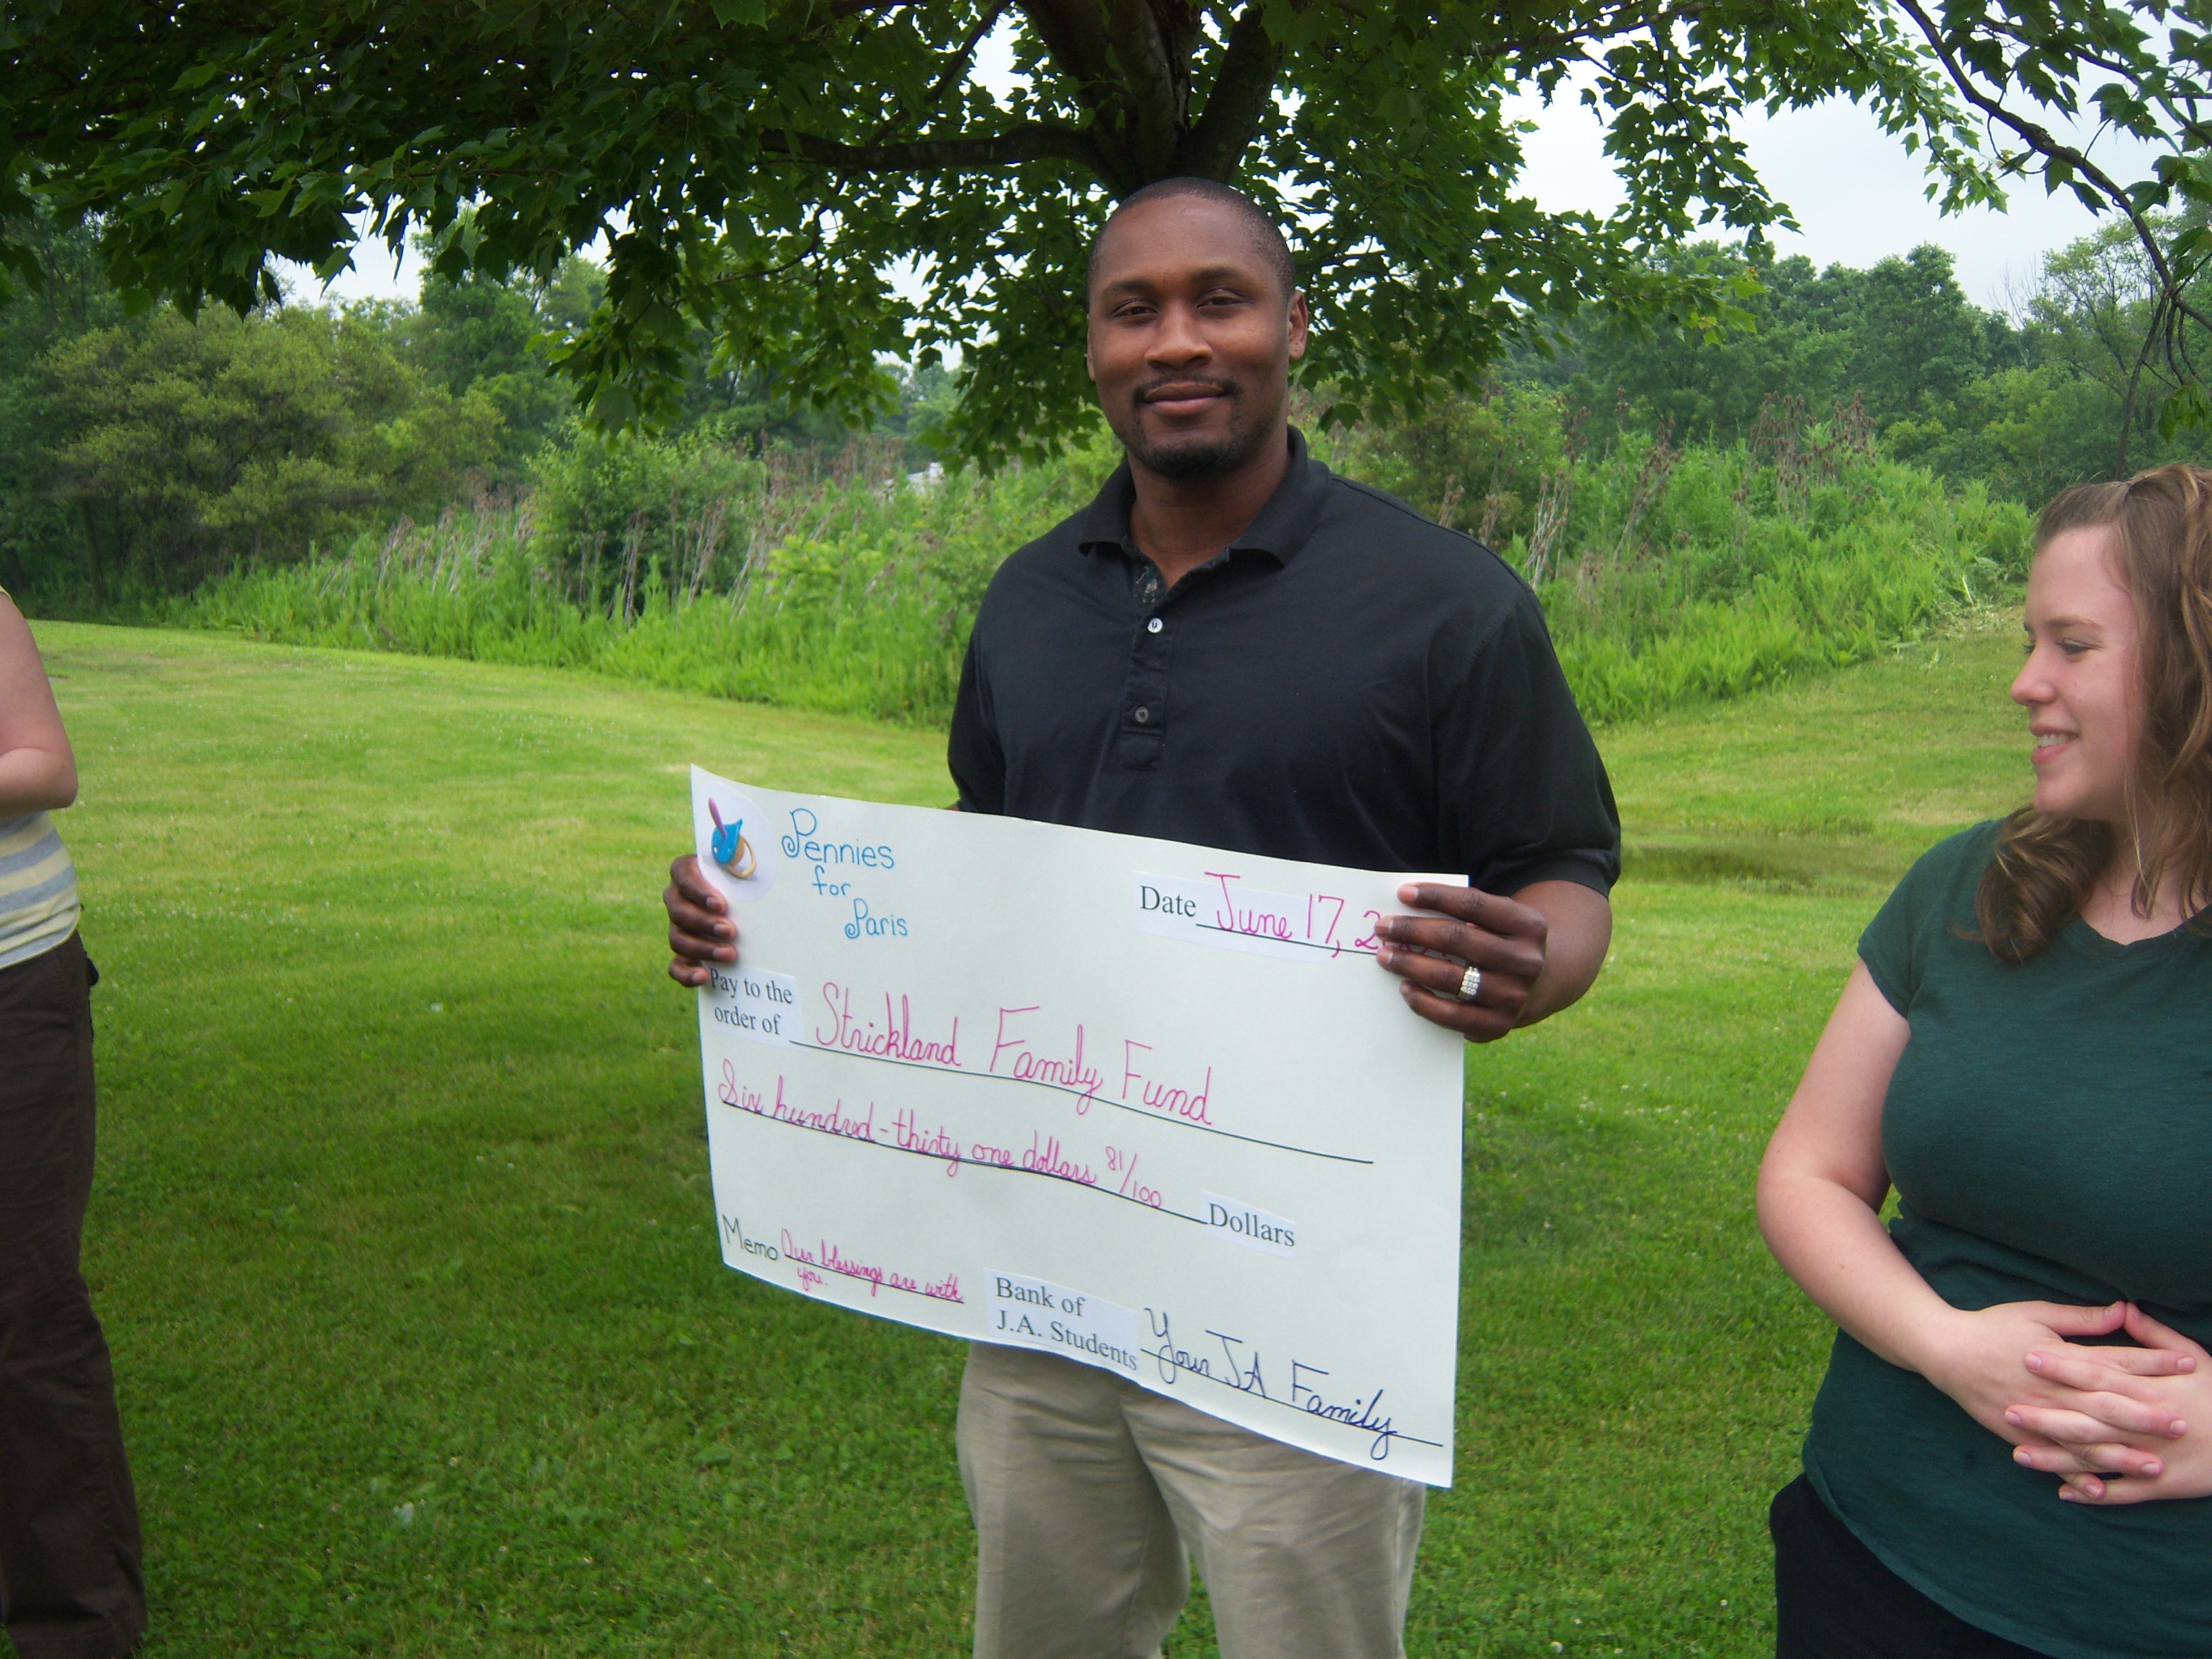 Pennies
for
Paris
Date June 17,
Pay to the
order of Strickland Family Fund
Six hundred-thirty one dollars 81/100 Dollars
Memo Our blessings are with
you.
Bank of
J.A. Students
Your JA Family